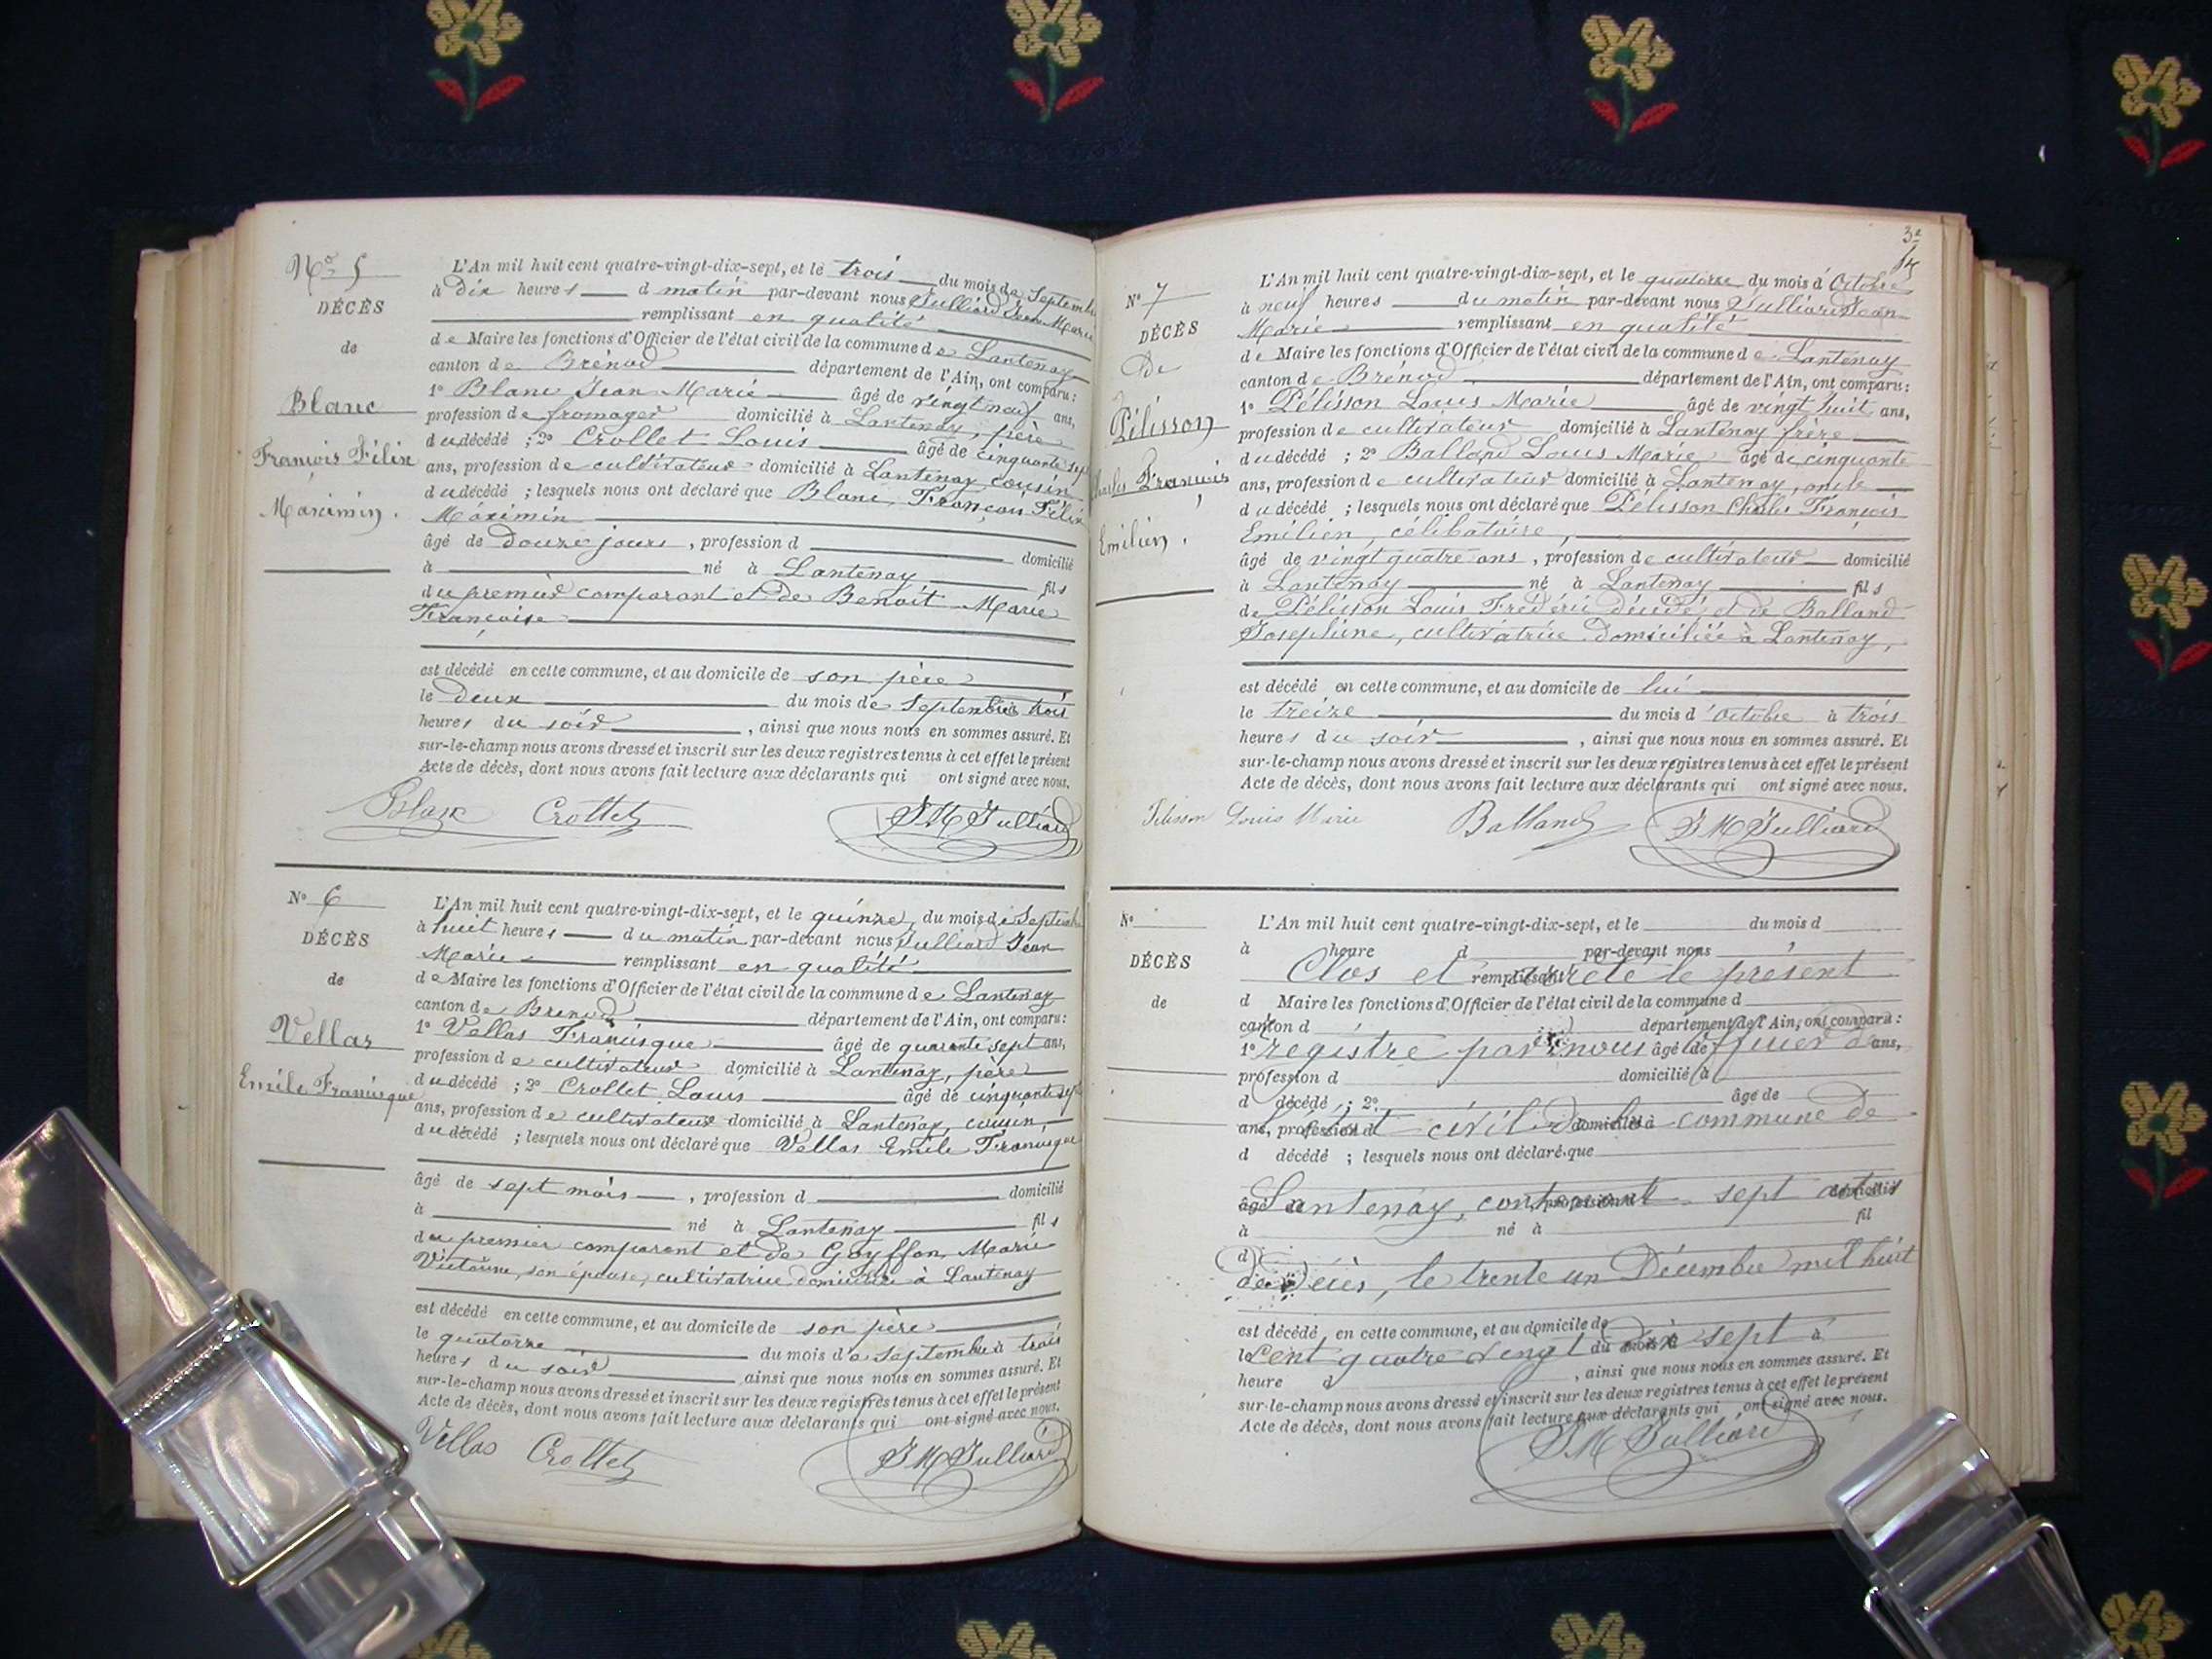 No 5
DÉCÈS
de
Blanc
François Félix
Maximin.
L'An mil huit cent quatre-vingt-dix-sept, et le trois du mois de Septembre
à Dix heures du matin par-devant nous Julliard Jean Marie
remplissant en qualité
de Maire les fonctions d'Officier de l'état civil de la commune de Lantenay
canton de Brénod département de l'Ain, ont comparu :
1o Blanc Jean Marie âgé de vingt neuf ans,
profession de fromager domicilié à Lantenay, père
du décédé ; 2o Crollet Louis âgé de cinquante sept
ans, profession de cultivateur domicilié à Lantenay cousin
du décédé ; lesquels nous ont déclaré que Blanc, François Félix
Maximin
âgé de Douze jours, profession d domicilié
à né à Lantenay fils
du premier comparant et de Benoit Marie
Françoise
est décédé en cette commune, et au domicile de son père
le deux du mois de Septembre trois
heures du soir, ainsi que nous nous en sommes assuré. Et
sur-le-champ nous avons dressé et inscrit sur les deux registres tenus à cet effet le présent
Acte de décès, dont nous avons fait lecture aux déclarants qui ont signé avec nous.
Blanc Crollet J M Julliard
No 6
DÉCÈS
de
Vellas
Emile Francisque
L'An mil huit cent quatre-vingt-dix-sept, et le quinze du mois de Septembre
à huit heures du matin par-devant nous Julliard Jean
Marie remplissant en qualité
de Maire les fonctions d'Officier de l'état civil de la commune de Lantenay
canton de Brenod département de l'Ain, ont comparu :
1o Vellas Francisque âgé de quarante sept ans,
profession de cultivateur domicilié à Lantenay, père
du décédé ; 2o Crollet Louis âgé de cinquante sept
ans, profession de cultivateur domicilié à Lantenay, cousin
du décédé ; lesquels nous ont déclaré que Vellas Emile Francisque
âgé de sept mois, profession d domicilié
à né à Lantenay fils
du premier comparant et de Goyffon Marie
Victorine, son épouse, cultivatrice domiciliée à Lantenay
est décédé en cette commune, et au domicile de son père
le quatorze du mois de Septembre à trois
heures du soir, ainsi que nous nous en sommes assuré. Et
sur-le-champ nous avons dressé et inscrit sur les deux registres tenus à cet effet le présent
Acte de décès, dont nous avons fait lecture aux déclarants qui ont signé avec nous.
Vellas Crollet J M Julliard
3e
No 7
DÉCÈS
De
Pélisson
Charles François
Emilien.
L'An mil huit cent quatre-vingt-dix-sept, et le quatorze du mois d'Octobre
à neuf heures du matin par-devant nous Julliard Jean
Marie remplissant en qualité
de Maire les fonctions d'Officier de l'état civil de la commune de Lantenay
canton de Brénod département de l'Ain, ont comparu :
1o Pélisson Louis Marie âgé de vingt huit ans,
profession de cultivateur domicilié à Lantenay frère
du décédé ; 2o Balland Louis Marie âgé de cinquante
ans, profession de cultivateur domicilié à Lantenay, oncle
du décédé ; lesquels nous ont déclaré que Pélisson Charles François
Emilien, célibataire,
âgé de vingt quatre ans, profession de cultivateur domicilié
à Lantenay né à Lantenay fils
de Pélisson Louis Frédéric décédé et de Balland
Joséphine, cultivatrice domiciliée à Lantenay,
est décédé en cette commune, et au domicile de lui
le treize du mois d'Octobre à trois
heures du soir, ainsi que nous nous en sommes assuré. Et
sur-le-champ nous avons dressé et inscrit sur les deux registres tenus à cet effet le présent
Acte de décès, dont nous avons fait lecture aux déclarants qui ont signé avec nous.
Pélisson Louis Marie Balland J M Julliard
No
DÉCÈS
de
L'An mil huit cent quatre-vingt-dix-sept, et le du mois d
à heure d par-devant nous
Clos et arrêté le présent
remplissant
d Maire les fonctions d'Officier de l'état civil de la commune d
canton d département de l'Ain, ont comparu :
registre par nous officier de
1o âgé de ans,
profession d domicilié à
d décédé ; 2o âgé de
l'état civil de la commune de
ans, profession d domicilié à
d décédé ; lesquels nous ont déclaré que
Lantenay, contenant sept actes
âgé de profession d domicilié
à né à fil
d
de décès, le trente un Décembre mil huit
est décédé en cette commune, et au domicile de
cent quatre vingt dix sept
le du mois d à
heure d, ainsi que nous nous en sommes assuré. Et
sur-le-champ nous avons dressé et inscrit sur les deux registres tenus à cet effet le présent
Acte de décès, dont nous avons fait lecture aux déclarants qui ont signé avec nous.
J M Julliard